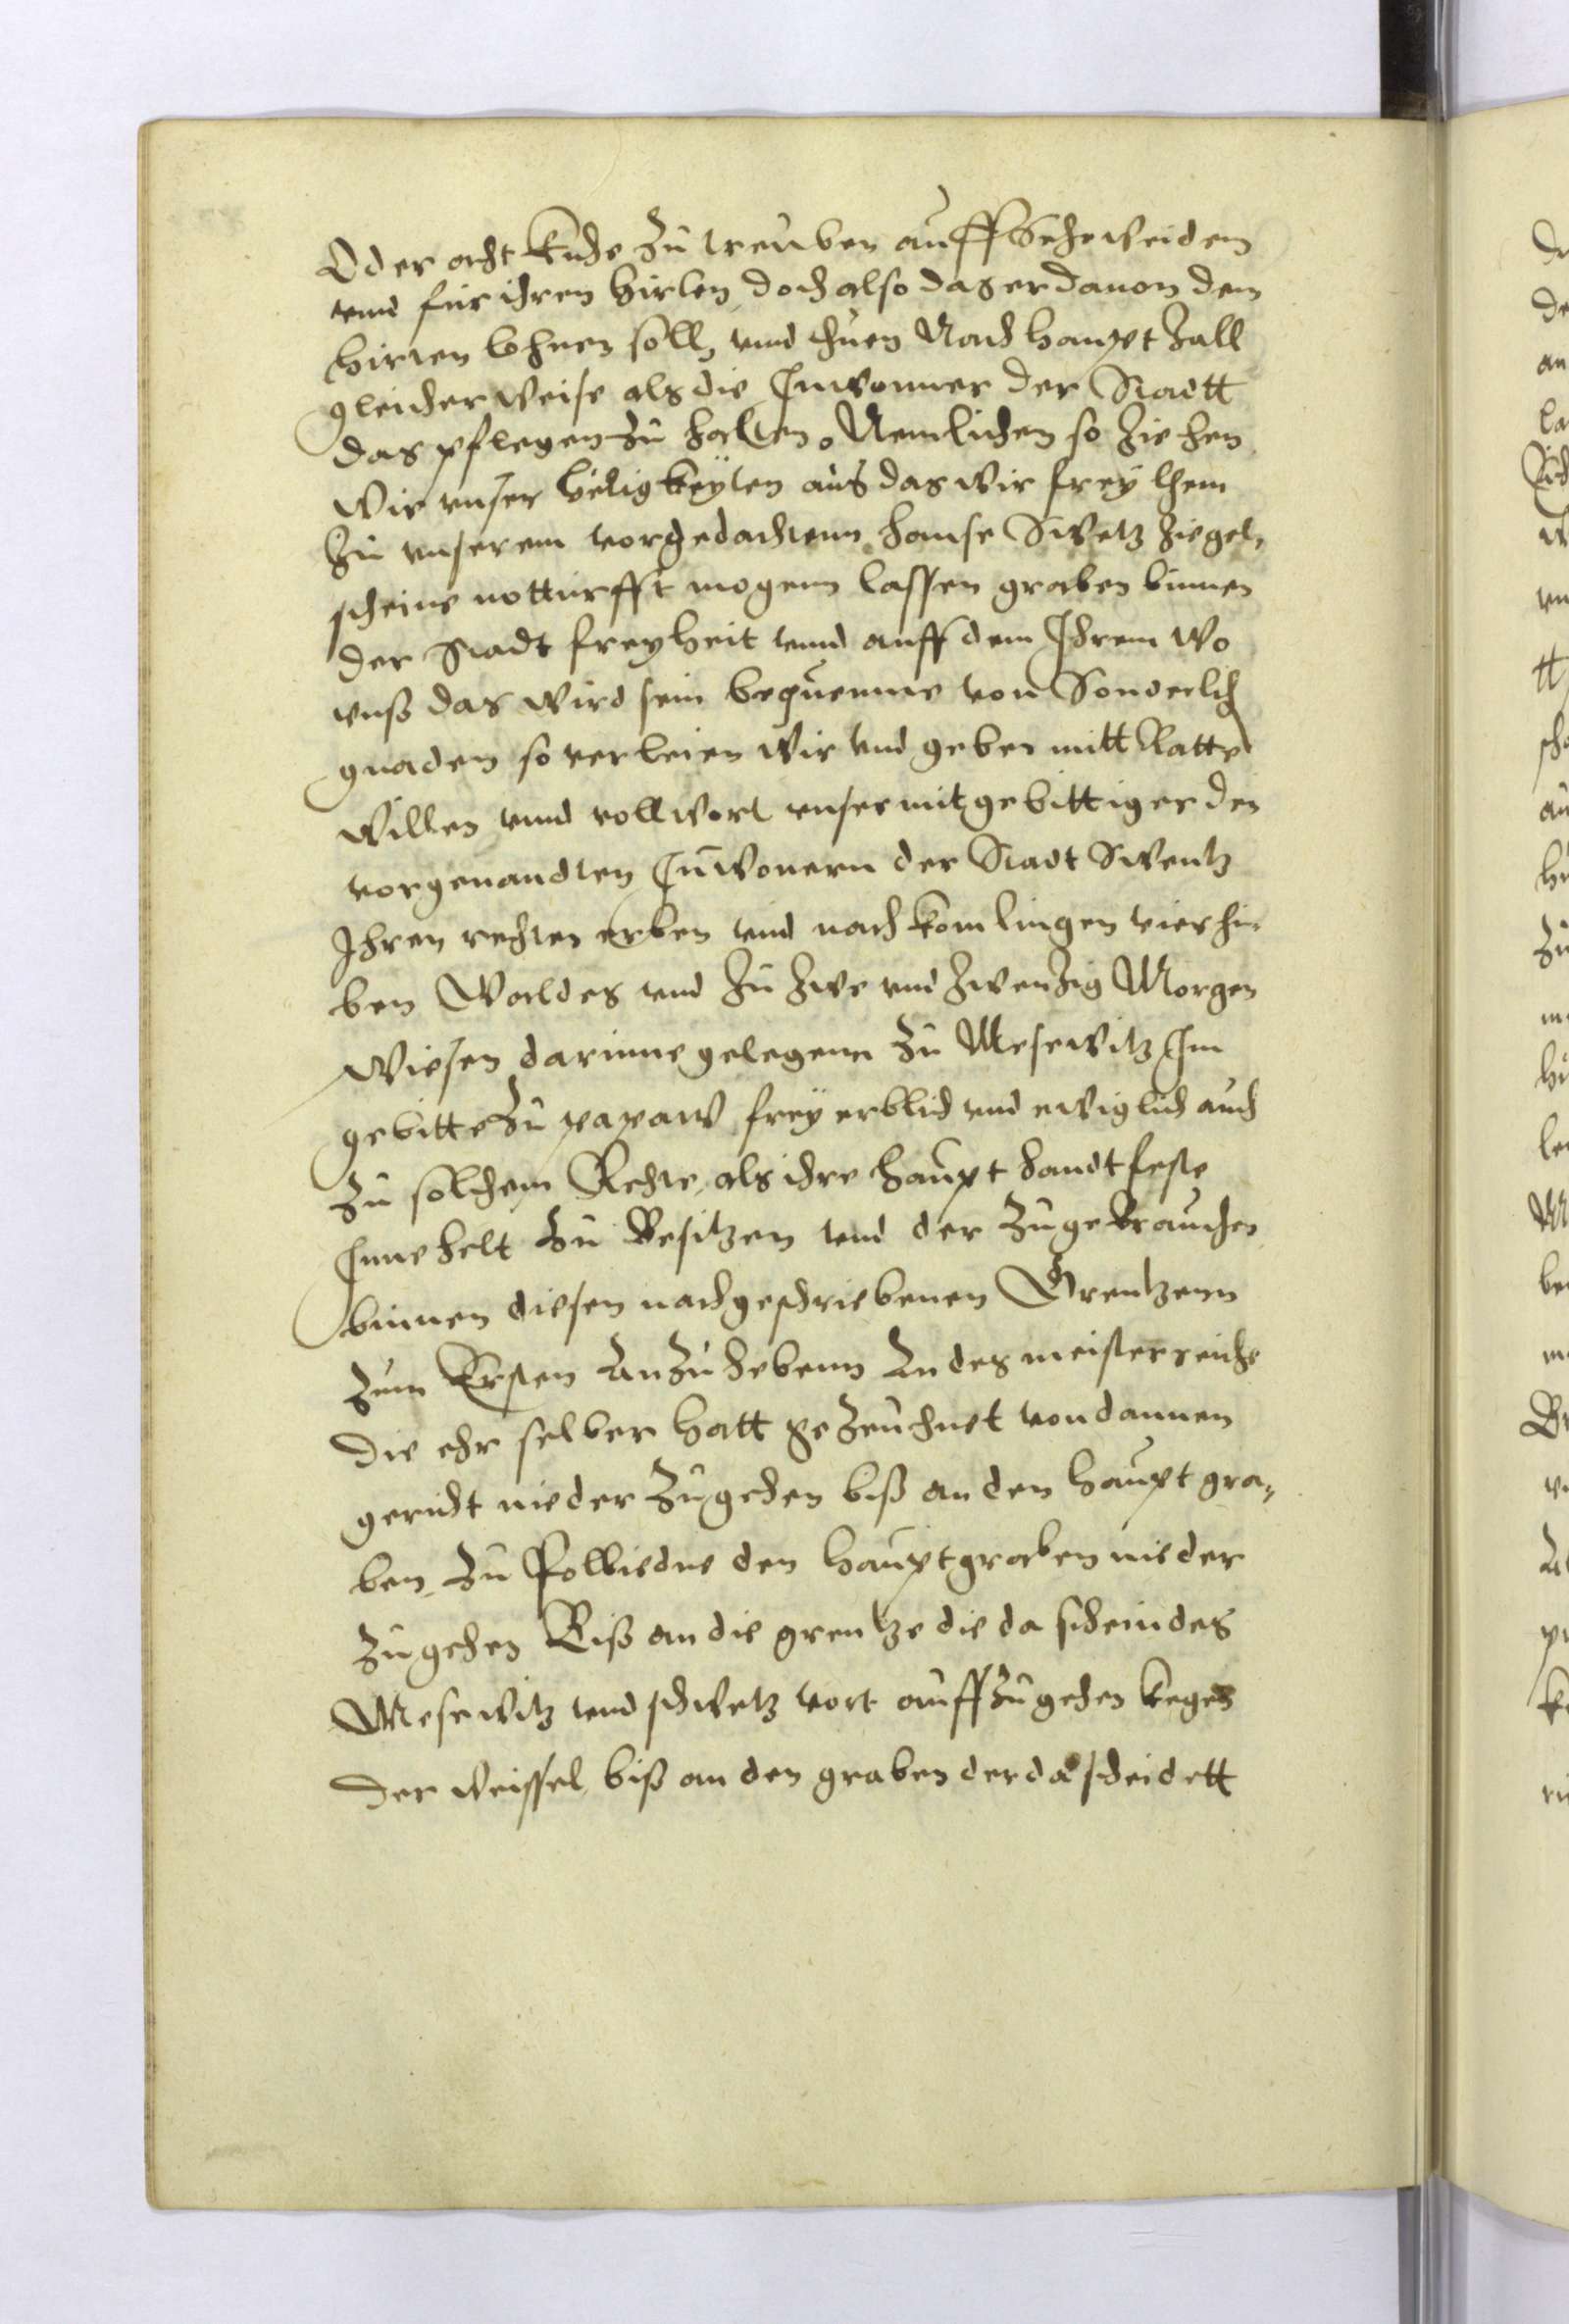 Oder acht Kuhe zu treuben auff Ihre weidem
vnnd für ihren hirten, doch also das er dauon dem
hirten lohnen soll, vnnd thuen Nach haupt zall
gleicher weise als die Inwonner der Stadtt
das pflegen zu halten. Nemlichen so ziehen
Wir vnser beligkeyten aus das wir frey lhem
zu vnserem vorgedachtenn hause Swetz ziegel,
scheine notturfft mogenn lassen graben binnen
der Stadt freyheit vnnd auff dem Ihrem wo
vnß das wird sein bequemme von Sonderlich
gnaden so verleien wir vnd geben mitt Ratte
willen vnnd vollwort vnser mitgebittiger den
vorgenandten Inwonern der Stadt Swentz
Ihren rechten erben vnd nachkomlingen vier hu-
ben Waldes vnd zu zwe vnd zwenzig Morgen
Wiesen darinne gelegenn zu Mesewitz Im
gebitte zu papaw frey erblich vnd ewiglich auch
zu solchem Rechte, als ihre haupt handtfeste
Inne helt zu Besitzen vnd der zugebrauchen
binnen diesen nachgeschriebenen Grentzenn
zum Ersten Anzuhebenn An des meisters eiche
die ehr selber hatt gezeuchnet von dannen
gericht nieder zugehen biß an den haupt gra,
ben, zu Polliedne den hauptgraben nieder
zugehen Biß an die grentze die da scheindes
Mesewitz vnd schwetz vort auffzugehen kegen
der weissel, biß an den graben der da scheidett